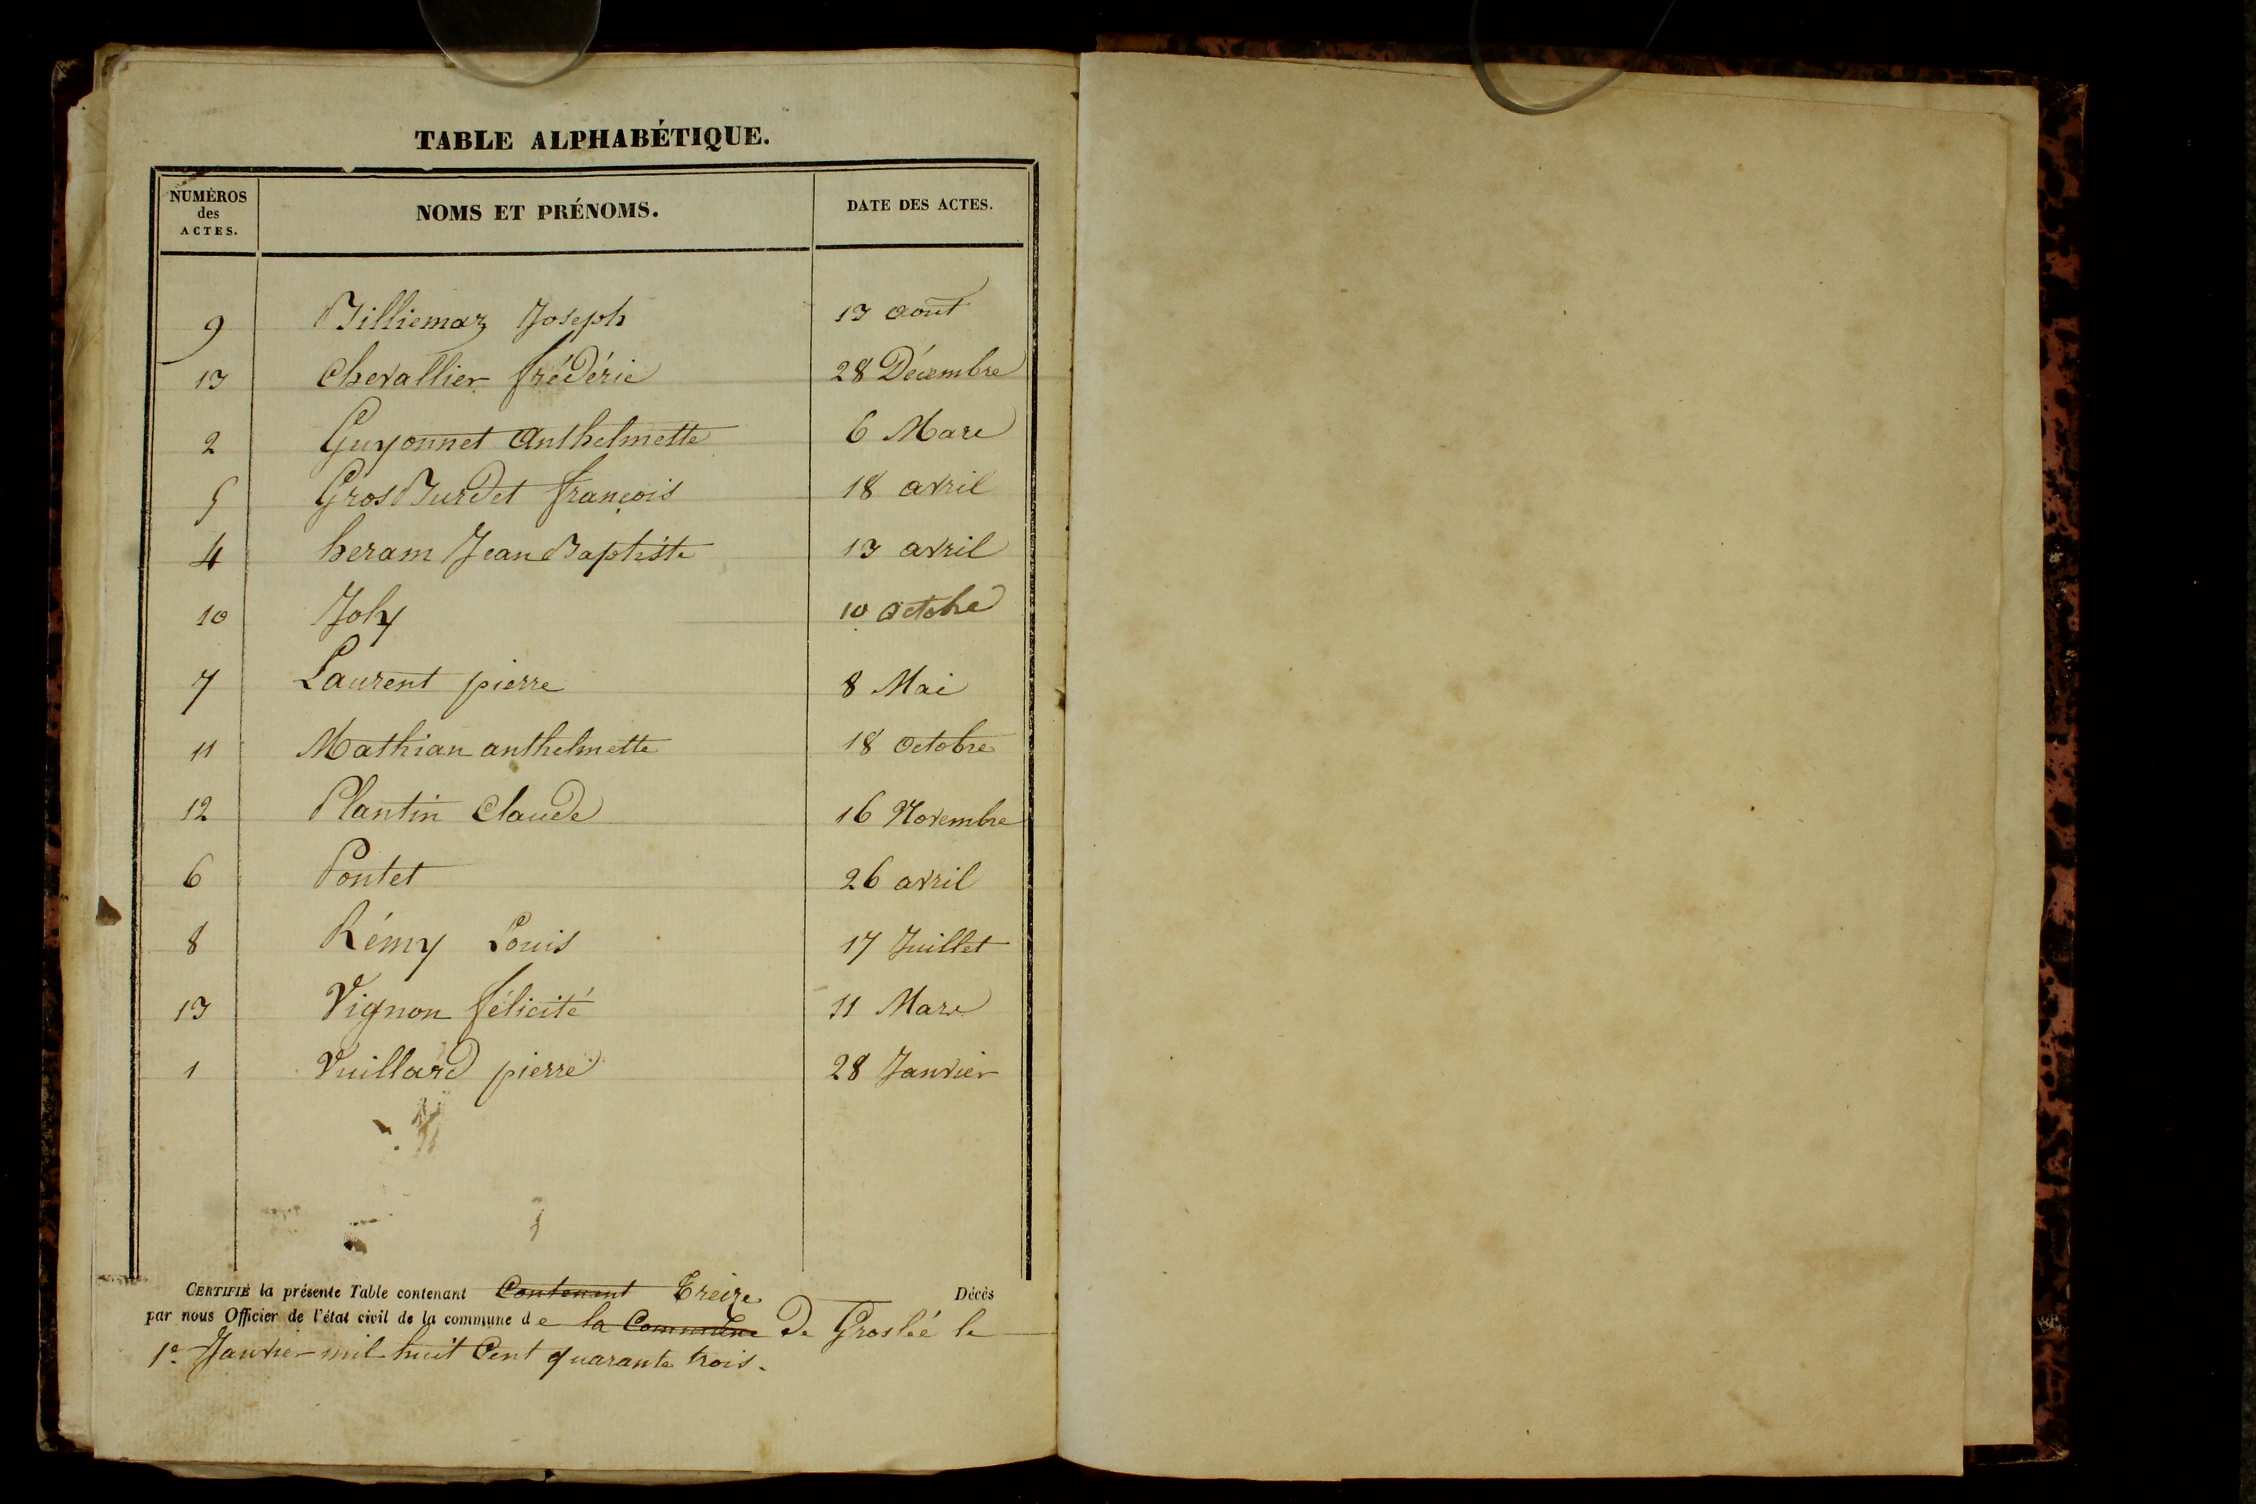 TABLE ALPHABÉTIQUE.
NUMÉROS des ACTES. NOMS ET PRÉNOMS. DATE DES ACTES.
9 Billiemaz Joseph 13 aout
13 Chevallier frédéric 28 Décembre
2 Guyonnet Anthelmette 6 Mars
5 Gros Burdet françois 18 avril
4 heram Jean Baptiste 13 avril
10 Joly 10 octobre
7 Laurent pierre 8 Mai
11 Mathian anthelmette 18 octobre
12 Plantin Claude 16 Novembre
6 Pontet 26 avril
8 Rémy Louis 17 Juillet
13 Vignon félicité 11 Mars
1 Vuillard pierre 28 Janvier
CERTIFIÉ la présente Table contenant Contenant Treize Décès
par nous Officier de l'état civil de la commune de la Commune De Groslée le
1er Janvier mil huit Cent quarante trois.